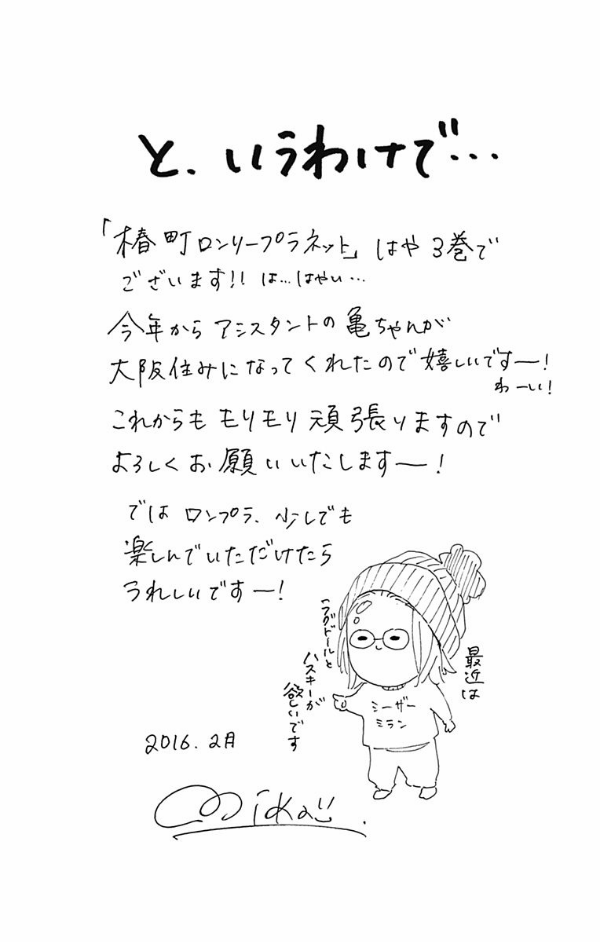 と、いうわけで…
「椿町ロンリープラネット」はや3巻で
ございます!! は…はやい…
今年からアシスタントの亀ちゃんが
大阪住みになってくれたので嬉しいですー!
わーい!
これからももりもり頑張りますので
よろしくお願いいたしますー!
ではロンプラ、少しでも
楽しんでいただけたら
うれしいですー!
最近は
ラグドールと
ハスキーが
欲しいです
シーザー
ミラン
2016.2月
Mika